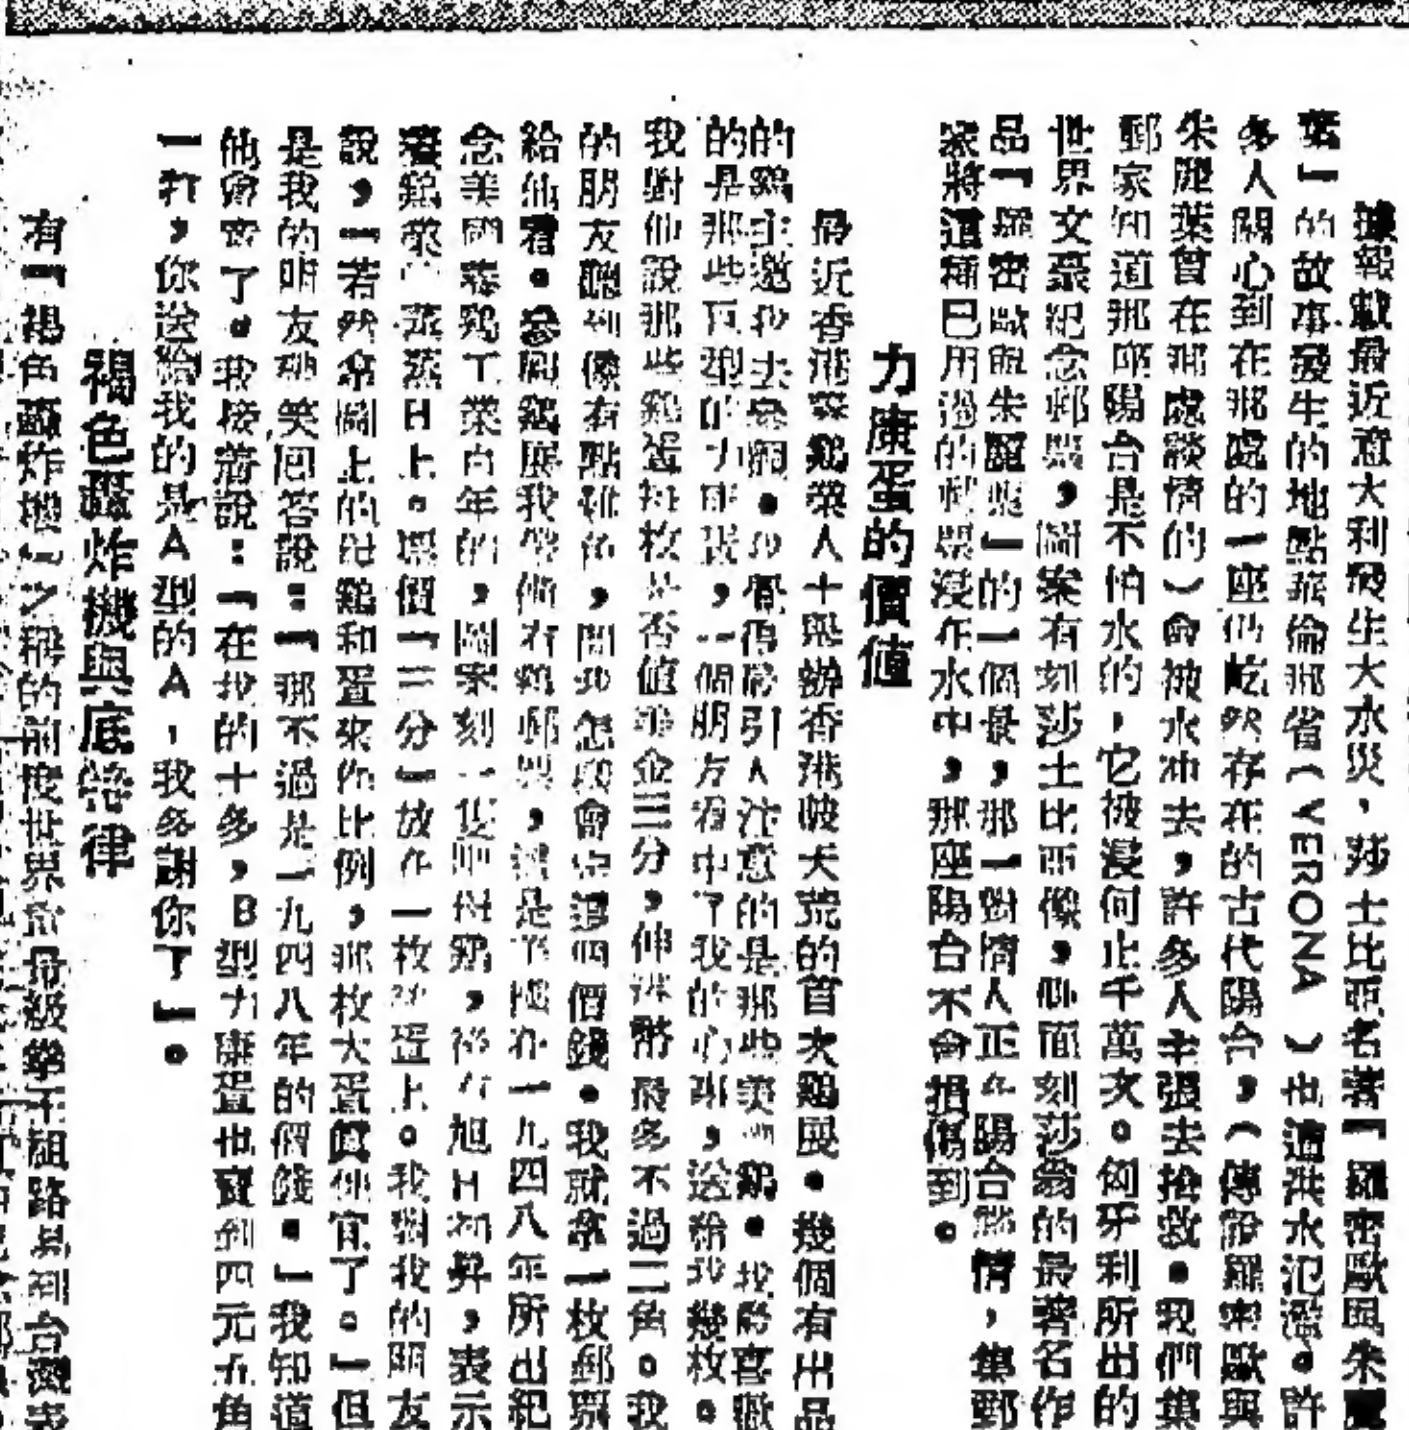 據報載最近意大利發生大水災，莎士比亞名著「羅密歐與朱麗
葉」的故事發生的地點菲倫那省（VERONA）也遭洪水氾濫。許
多人關心到在那處的一座仍屹然存在的古代陽台，（傳說羅密歐與
朱麗葉曾在那處談情的）會被水冲去，許多人主張去搶救。我們集
郵家知道那座陽台是不怕水的，它被浸何止千萬次。匈牙利所出的
世界文豪紀念郵票，圖案有刻莎士比亞像，側面刻莎翁的最著名作
品「羅密歐與朱麗葉」的一個景，那一對情人正在陽台談情，集郵
家將這種已用過的郵票浸在水中，那座陽台不會損傷到。
力康蛋的價值
最近香港養鷄業人士舉辦香港破天荒的首次鷄展。幾個有出品
的鷄主邀我去參觀。我覺得最引人注意的是那些美 鷄。我最喜歡
的是那些 型的力康蛋，一個朋友看中了我的心事，送給我幾枚。
我對他說那些鷄蛋每枚是否值美金三分，伸港幣最多不過二角。我
的朋友聽到像有點 ，問我怎麼會定這個價錢。我就拿一枚郵票
給他看。參閱鷄展我帶備有鷄郵票，這是美國在一九四八年所出紀
念美國養鷄工業百年的，圖案刻一隻 鷄，後有旭日初昇，表示
養鷄業 蒸蒸日上。票價「三分」放在一枚 蛋上。我對我的朋友
說，一若然拿圖上的母鷄和蛋來作比例，那枚大蛋眞便宜了。」但
是我的朋友 笑囘答說：「那不過是一九四八年的價錢。」我知道
他會 了。我接着說：「在我的十多，B型力康蛋也賣到四元五角
一打，你送給我的是A型的A，我多謝你了」。
褐色轟炸機與底特律
有「褐色轟炸機」之稱的前度世界 最級拳王祖路易到台灣表